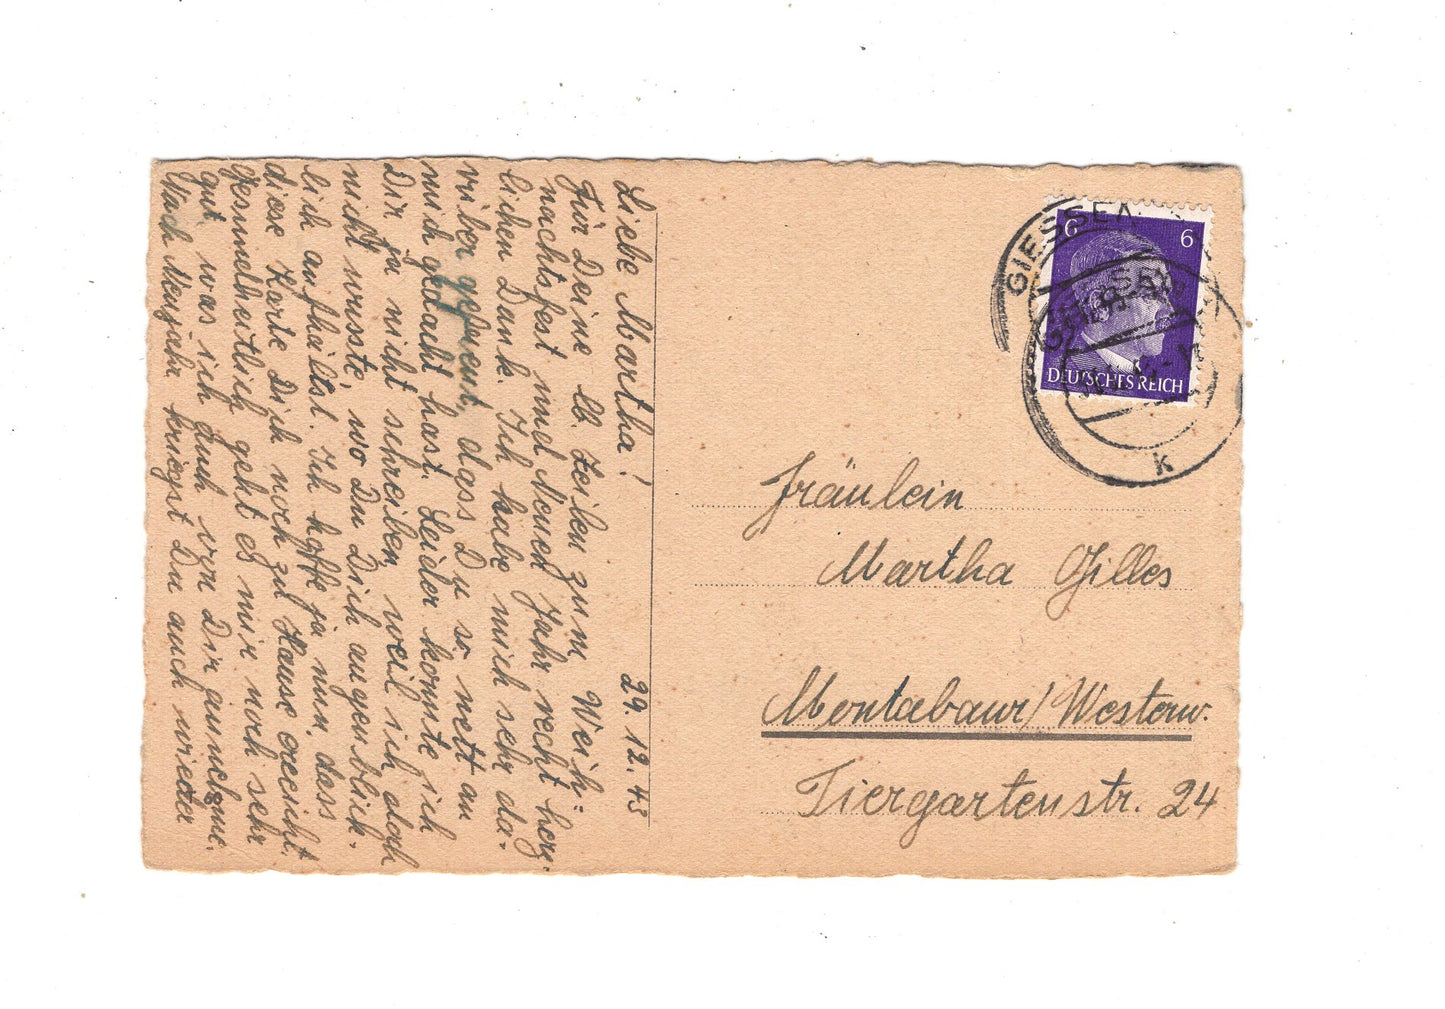 29.12.43
Liebe Martha!
Für Deine lb. Zeilen zum Weih-
nachtsfest und Neuen Jahr recht herz-
lichen Dank. Ich habe mich sehr da-
rüber gefreut, dass Du so nett an
mich gedacht hast. Leider konnte ich
Dir ja nicht schreiben, weil ich doch
nicht wusste, wo Du Dich augenblick-
lich aufhältst. Ich hoffe ja nun, dass
diese Karte Dich noch zu Hause erreicht.
Gesundheitlich geht es mir noch sehr
gut was ich auch von Dir annehme.
Nach Neujahr kriegst Du auch wieder
GIESSEN
6 6
DEUTSCHES REICH
k
Fräulein
Martha Gilles
Montabaur/Westerw.
Tiergartenstr. 24